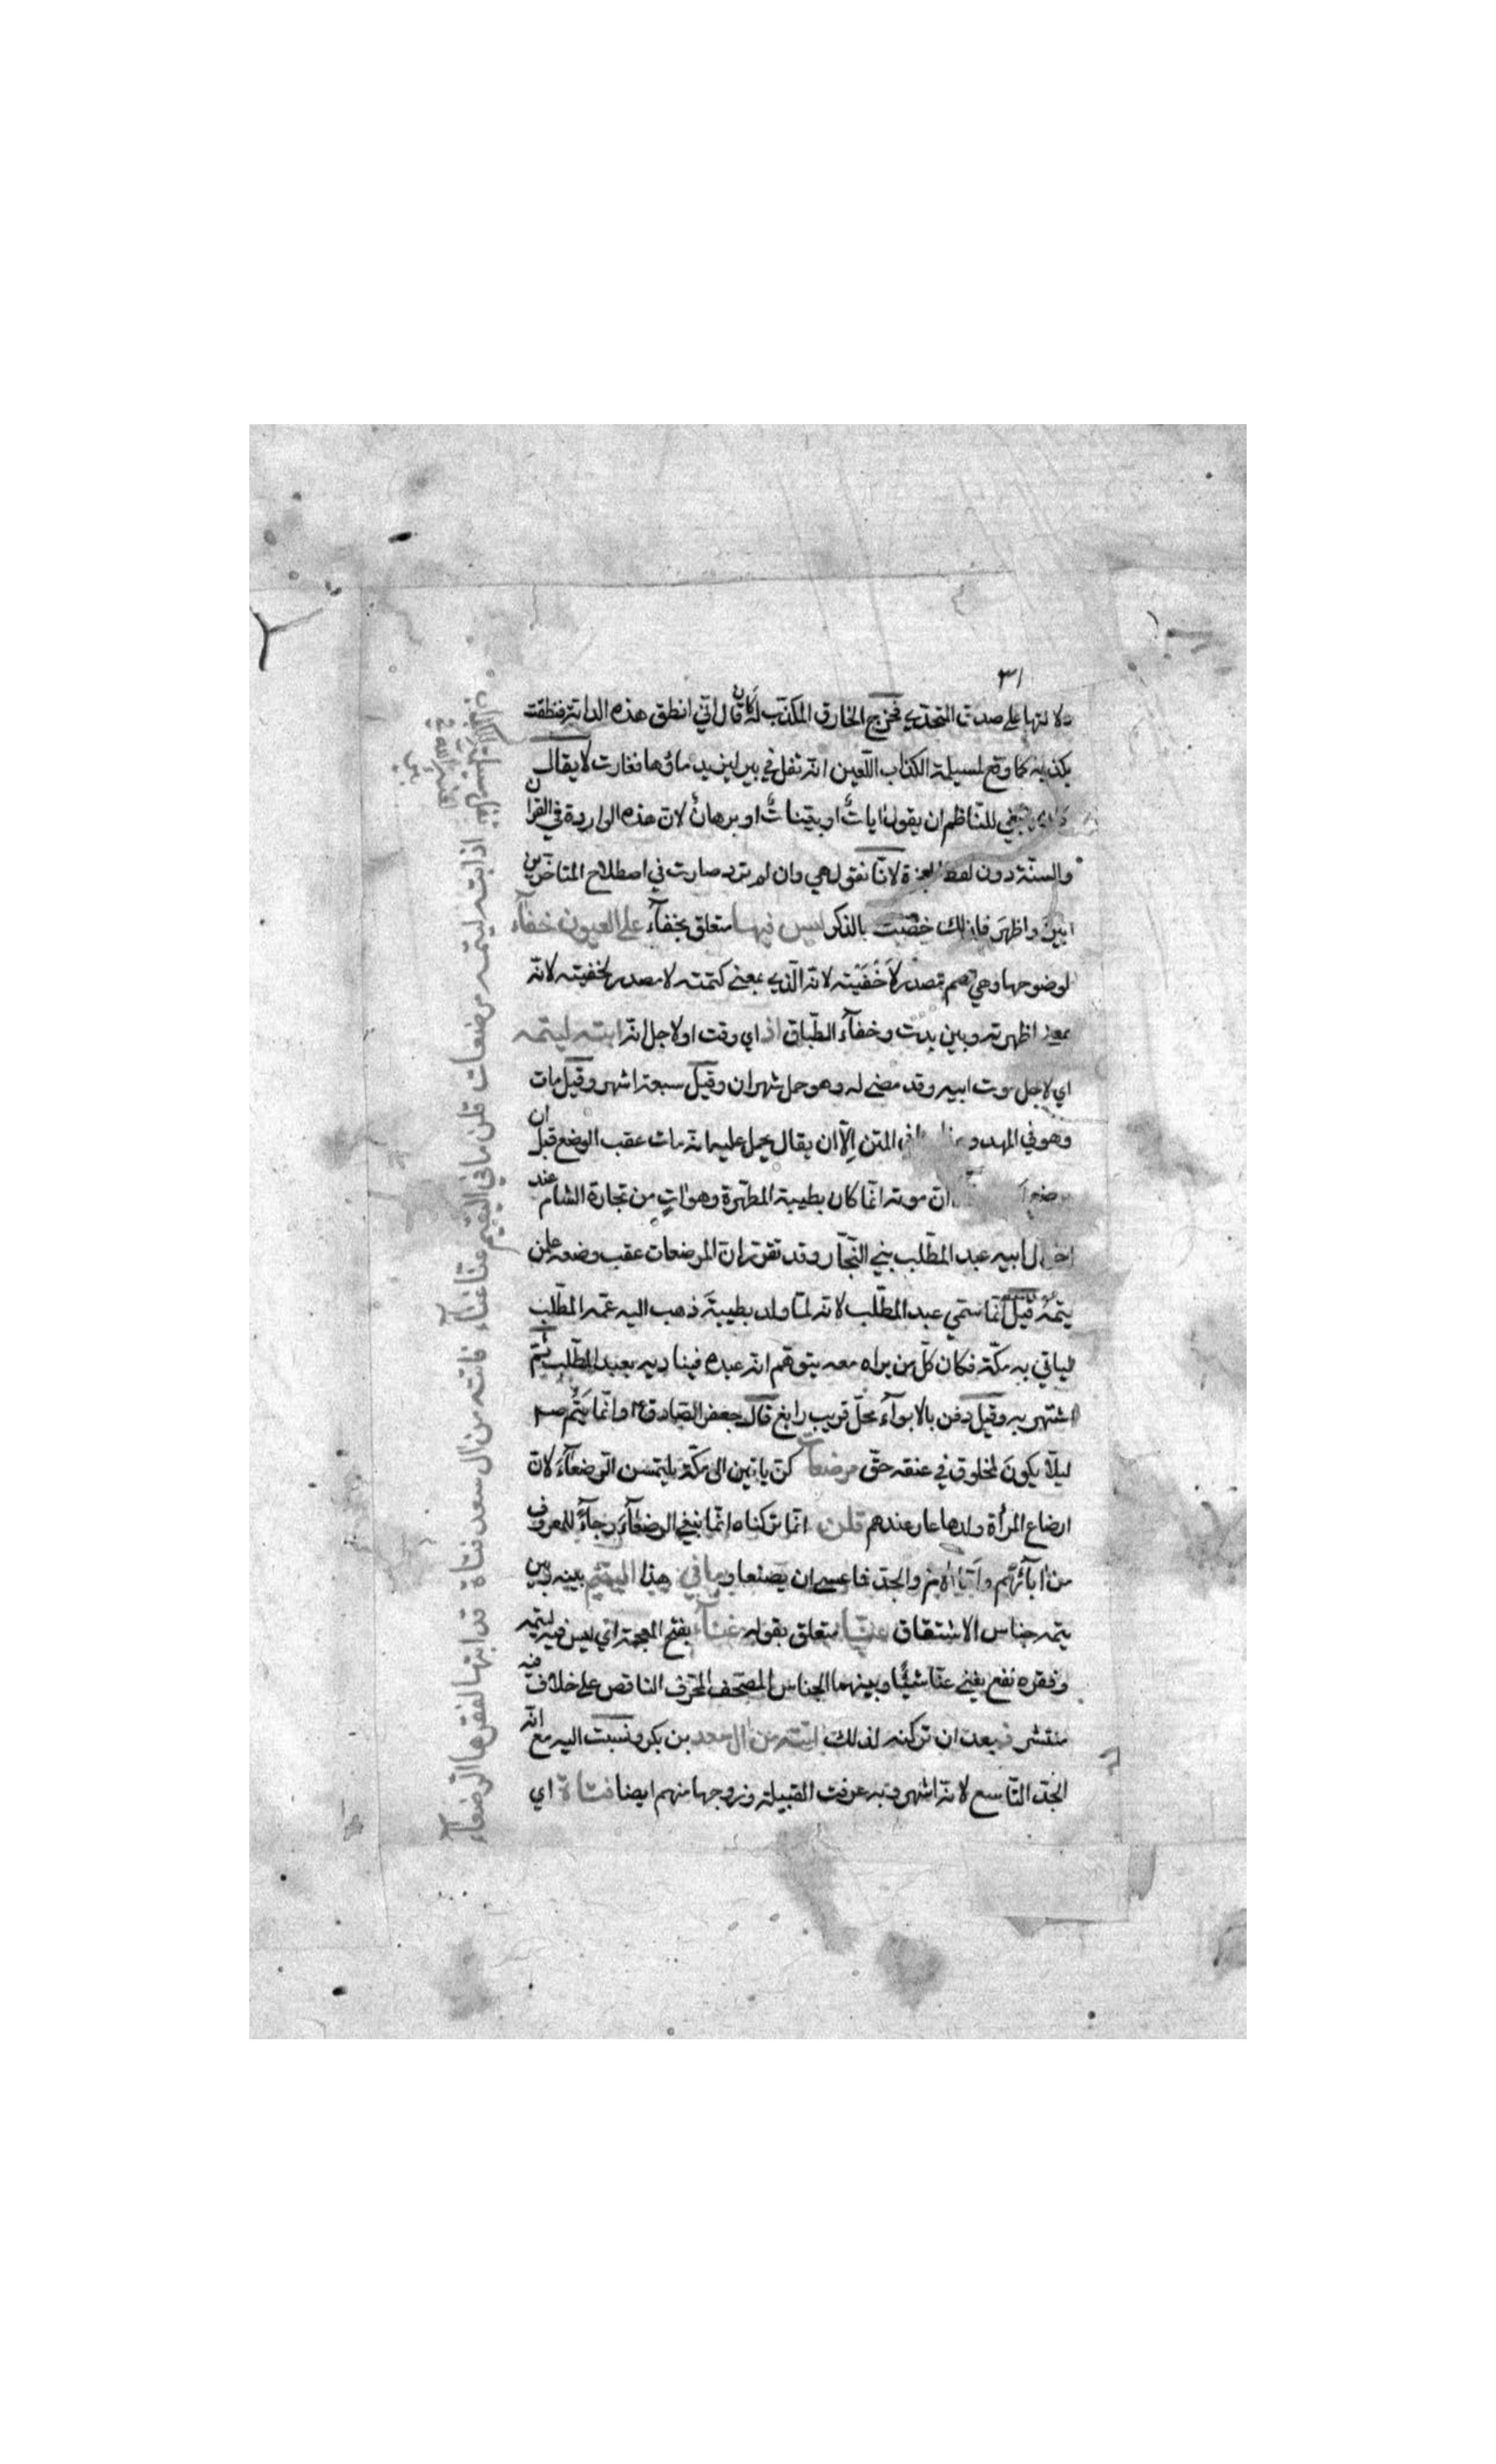 ٣١
دلالتها على صدق المتحدي فخرج الخارق المكذب له كان قال اني انطق هذه الدابة فنطقت
بكذبه كما وقع لمسيلة الكذاب اللعين انه تفل في بير ليزيد ماؤها فغارت لا يقال
للناظم ان يقول ايات او بينات او برهان لان هذه الواردة في القران
والسنة دون لفظ لانا نقول هي وان لم ترد صارت في اصطلاح المتاخرين
ابين واظهر فلذلك خصت بالذكر ليس فيها متعلق بخفآء على العيون خفآء
لوضوحها وهي مصدر لاخفيته لانه الذي بمعنى كتمته لا مصدر لخفيته لانه
بمعنى اظهرته وبين بدت وخفآء الطباق اذ اي وقت او لاجل انه ابته ليتمه
اي لاجل موت ابيه وقد مضى له وهو حمل شهران وقيل سبعة اشهر وقيل مات
وهو في المهد في المتن الا ان يقال يحمل عليه انه مات عقب الوضع قبل ان
ان موته انما كان بطيبة المطهرة وهو ات من تجارة الشام عند
اخوال ابيه عبد المطلب بني النجار وقد تقرر ان المرضعات عقب وضعه علمن
يتمه قيل انما سمي عبد المطلب لانه لما ولد بطيبة ذهب اليه عمه المطلب
لياتي به مكة فكان كل من يراه معه يتوهم انه عبده فيناديه بعبد المطلب ثم
اشتهر به وقيل دفن بالابوآء محل قريب رابغ قال جعفر الصادق وانما يتم
ليلا يكون لمخلوق في عنقه حق مرضعات كن ياتين الى مكة يلتمسن الرضعآء لان
ارضاع المرأة ولدها عار عندهم قلن انما تركناه انما نبغي الرضعآء رجآء للمعروف
من ابآئهم والجد فما عسى ان يصنعا وما في هذا اليتيم بينه وبين
يتمه جناس الاشتقاق عنا متعلق بقوله غنآء بفتح المعجمة اي ليس فيه ليتمه
وفقره نفع يغني عنا شيئا وبينهما الجناس المصحف المحرف الناقص على خلاف فيه
منتشر فبعد ان تركنه لذلك اتته من ال سعد بن بكر ونسبت اليه مع انه
الجد التاسع لانه اشهر وبه عرفت القبيلة وزوجها منهم ايضا فتاة اي
اذ ابته ليتمه مرضعات قلن ما في اليتيم عنا غنآء فاتته من ال سعد فتاة قد ابتها لفقرها الرضعآء